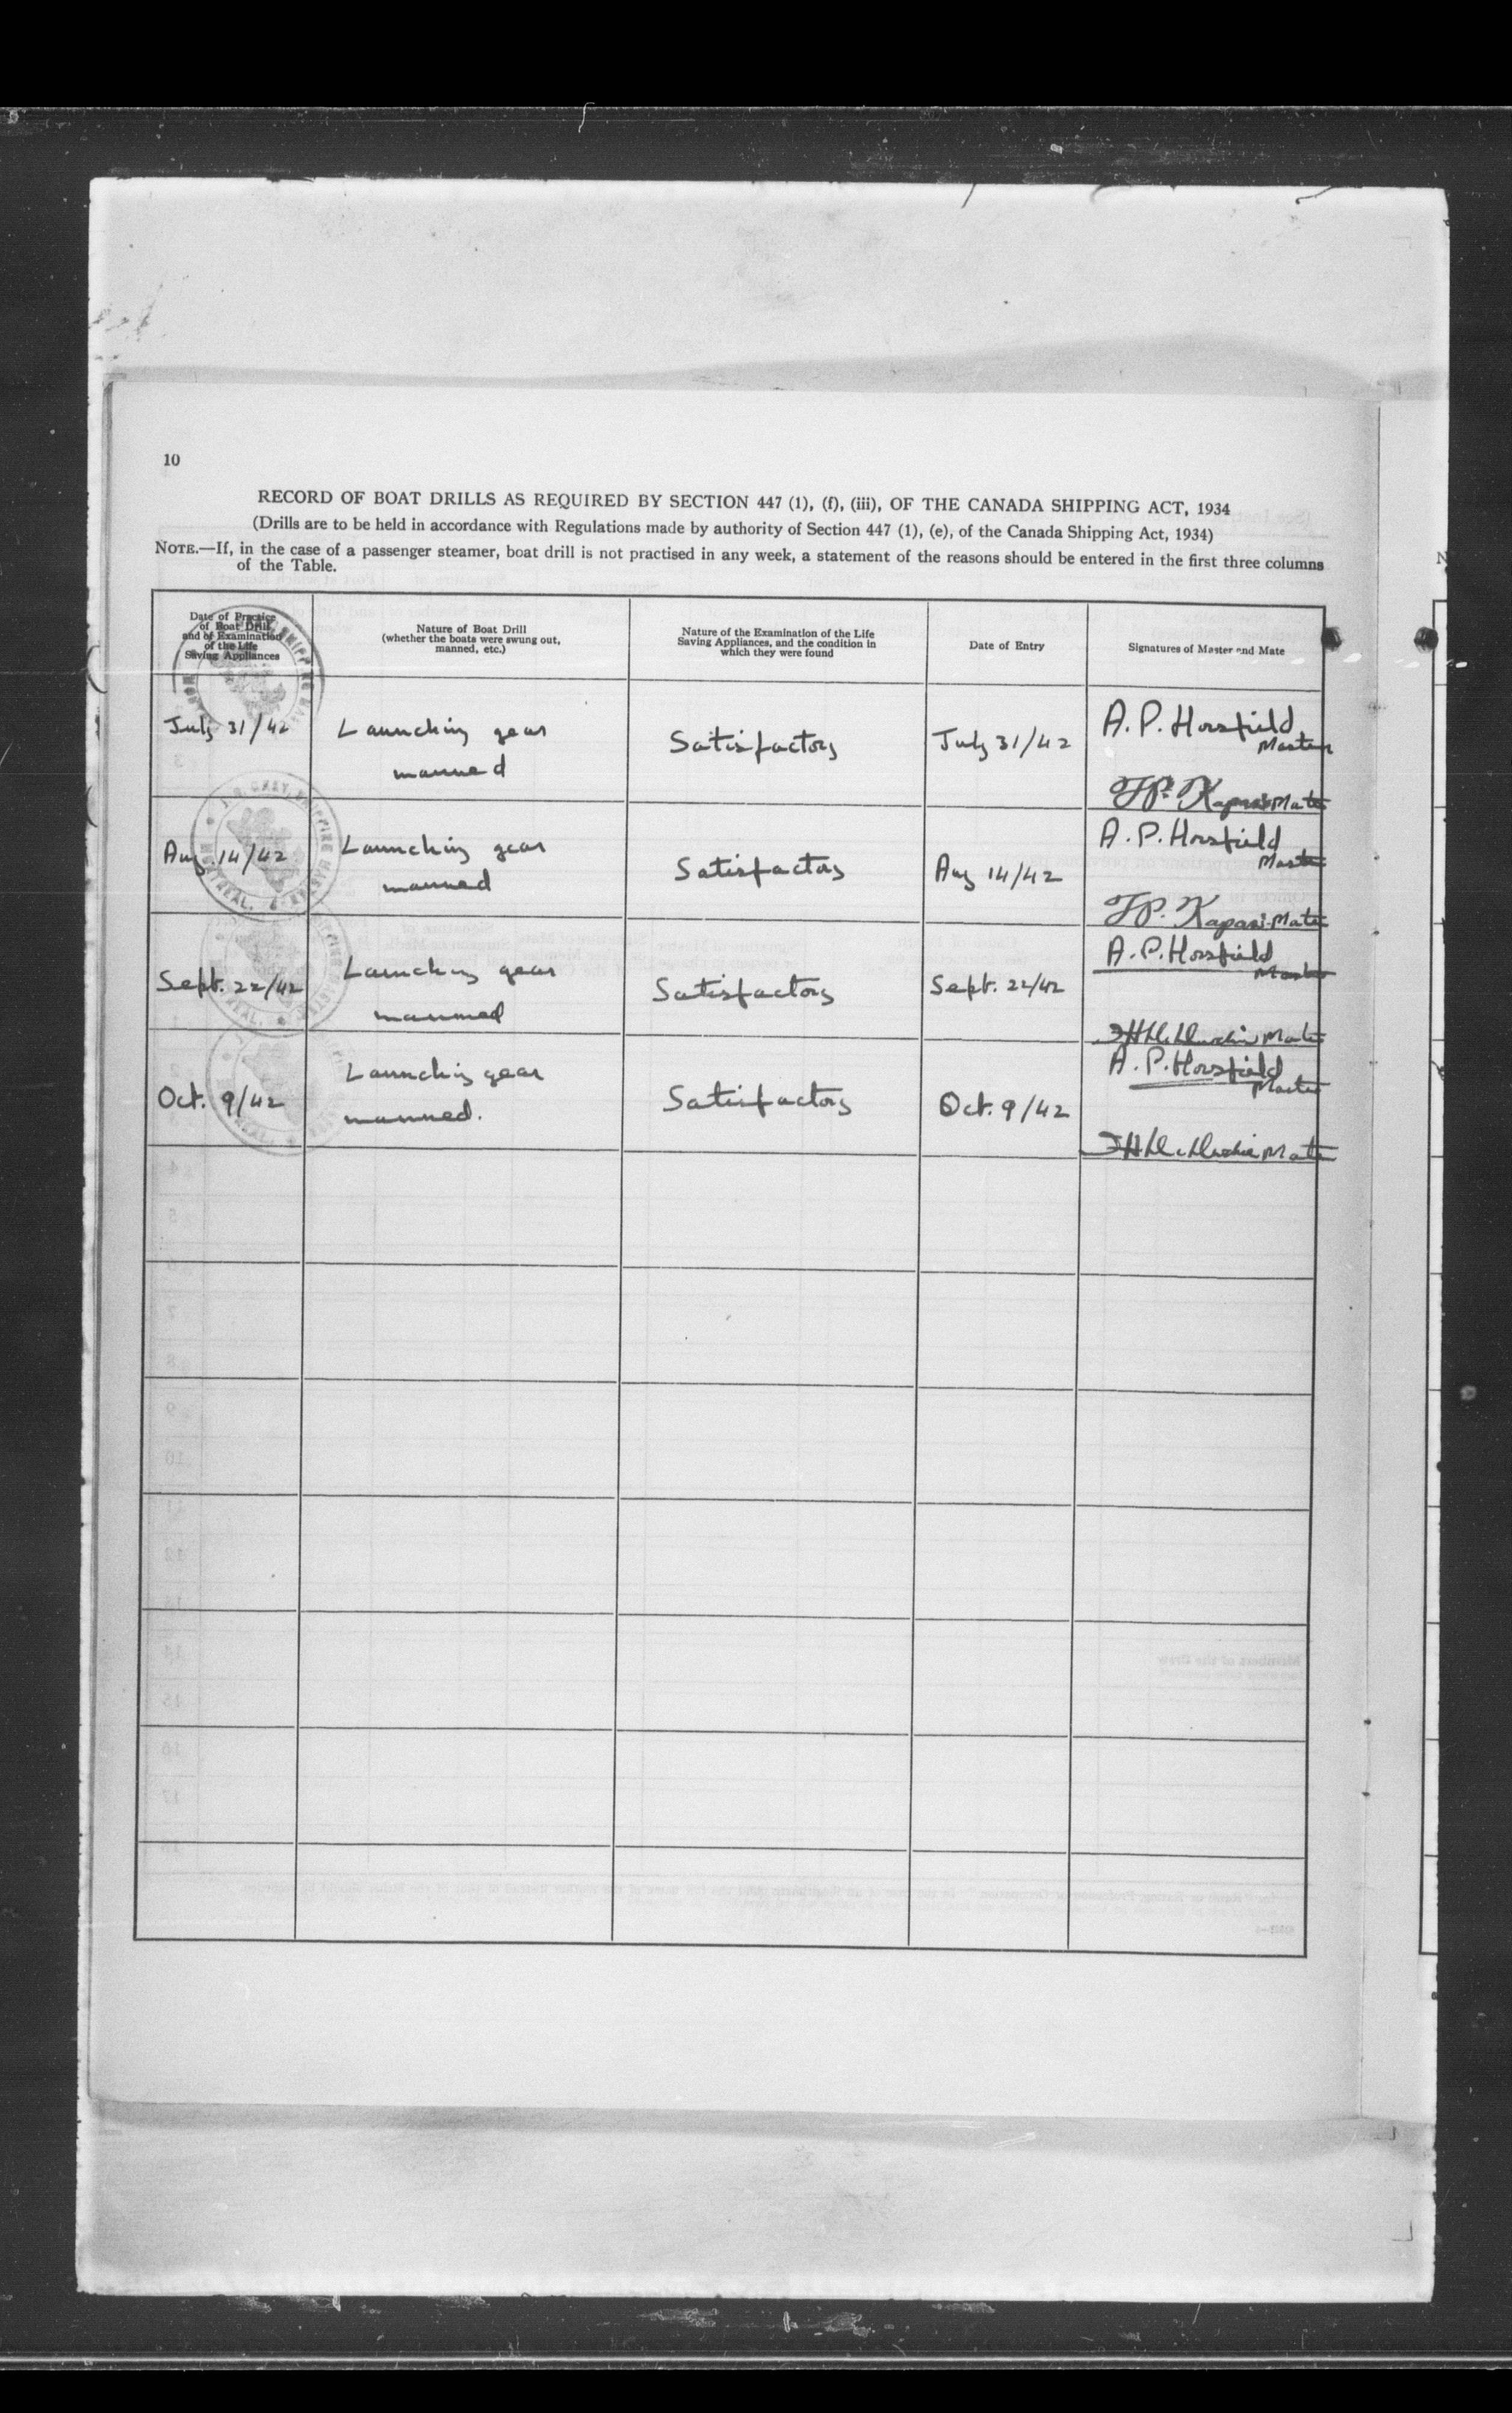 10
RECORD OF BOAT DRILLS AS REQUIRED BY SECTION 447 (1), (f), (iii), OF THE CANADA SHIPPING ACT, 1934
(Drills are to be held in accordance with Regulations made by authority of Section 447 (1), (e), of the Canada Shipping Act, 1934)
NOTE.—If, in the case of a passenger steamer, boat drill is not practised in any week, a statement of the reasons should be entered in the first three columns
of the Table.
Date of Practice
of Boat Drill
and of Examination
of the Life
Saving Appliances
Nature of Boat Drill
(whether the boats were swung out,
manned, etc.)
Nature of the Examination of the Life
Saving Appliances, and the condition in
which they were found
Date of Entry
Signatures of Master and Mate
July 31/42
Launching gear
manned
Satisfactory
July 31/42
A. P. Horsfield
Master
Mate
Aug. 14/42
Launching gear
manned
Satisfactory
Aug 14/42
A. P. Horsfield
Master
Mate
Sept. 22/42
Launching gear
manned
Satisfactory
Sept. 22/42
A. P. Horsfield
Master
Mate
Oct. 9/42
Launching gear
manned.
Satisfactory
Oct. 9/42
A. P. Horsfield
Master
Mate